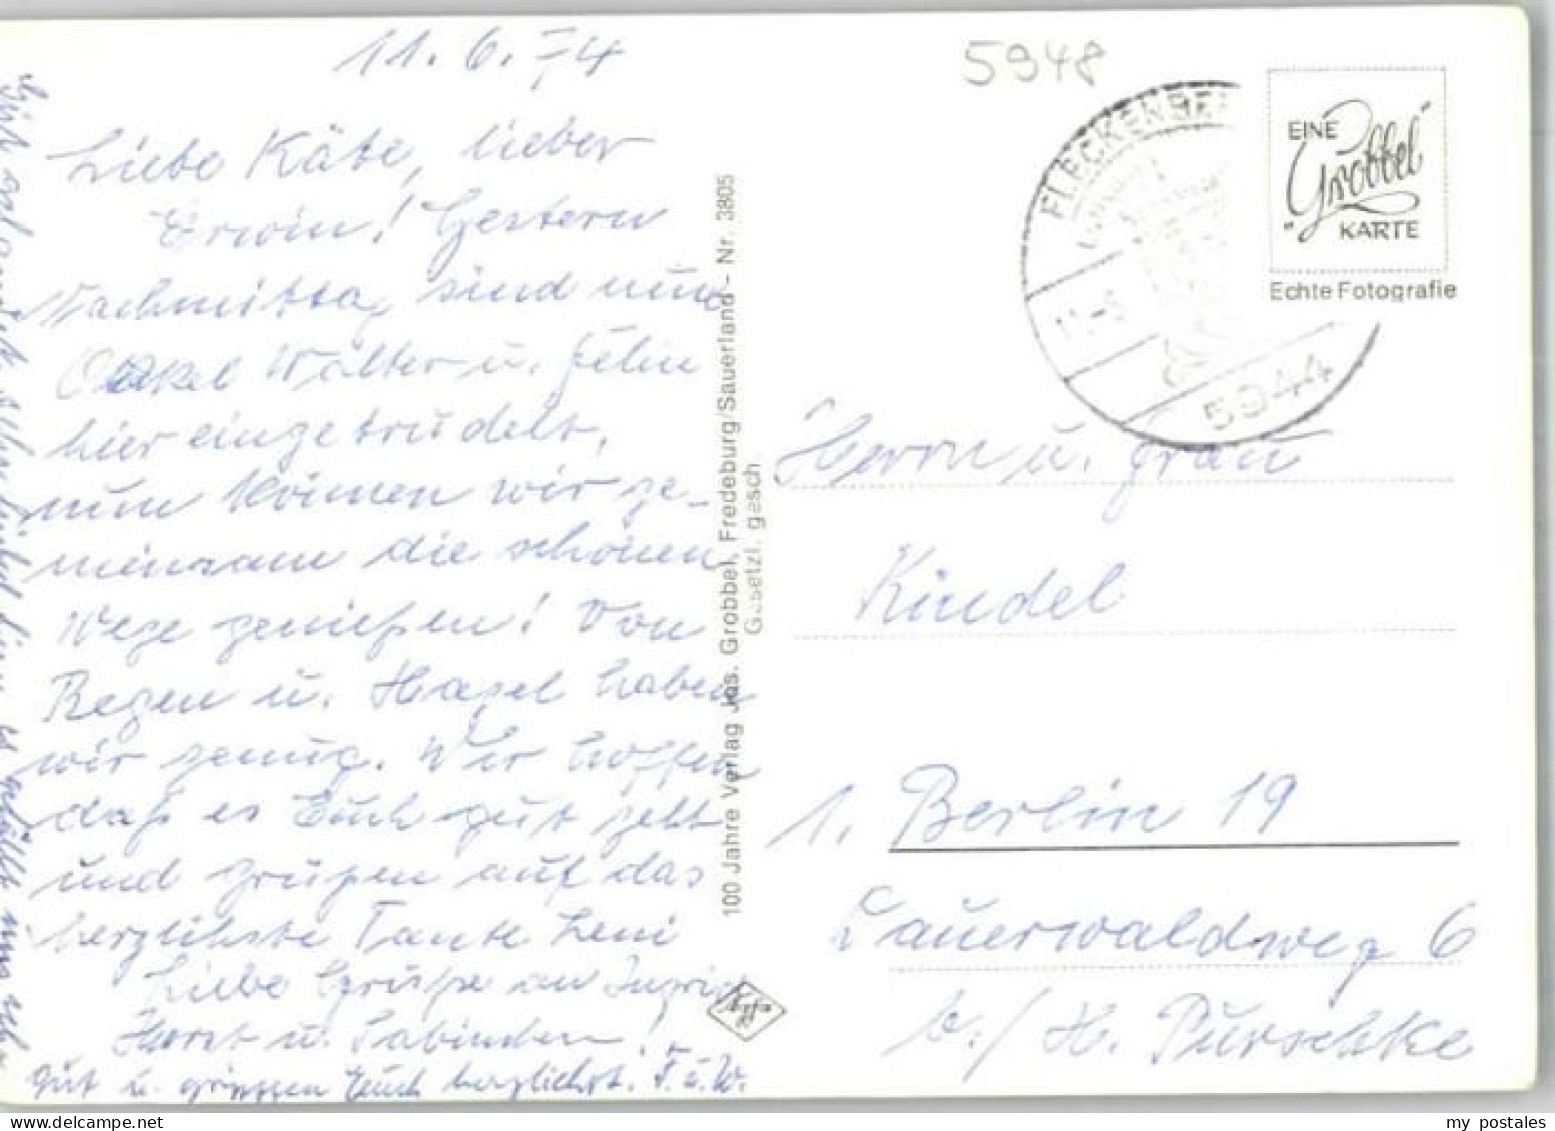 11. 6. 74
Liebe Käte, lieber
Erwin! Gestern
Nachmittag sind nun
Onkel Walter u.
hier eingetrudelt,
nun können wir ge-
meinsam die schönen
Wege genießen! Von
Regen u. Hagel haben
wir genug. Wir hoffen
daß es Euch gut geht
und grüßen auf das
herzlichste Tante Leni
Liebe Grüße an Ingrid
Horst u. Sabinchen!
gut u. grüssen Euch herzlichst. F. u. W.
100 Jahre Verlag Jos. Grobbel, Fredeburg/Sauerland - Nr. 3805
Gesetzl. gesch
5948
FLECKENBE
5944
EINE
"Grobbel"
KARTE
Echte Fotografie
Herrn u. Frau
Kindel
1. Berlin 19
Lauerwaldweg 6
b./ H. Purschke
my postales